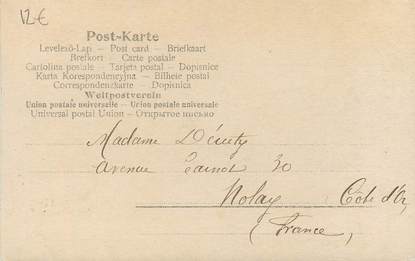 12€
Post-Karte
Levelező-Lap — Post card — Briefkaart
Brefkort — Carte postale
Cartolina postale — Tarjeta postal — Dopisnice
Karta Korespondencyjna — Bilhete postal
Correspondenzkarte — Dopisnica
Weltpostverein
Union postale universelle — Unione postale universale
Universal postal Union — Открытое письмо
Madame
avenue Carnot 30
Nolay Côte d'Or,
(France,